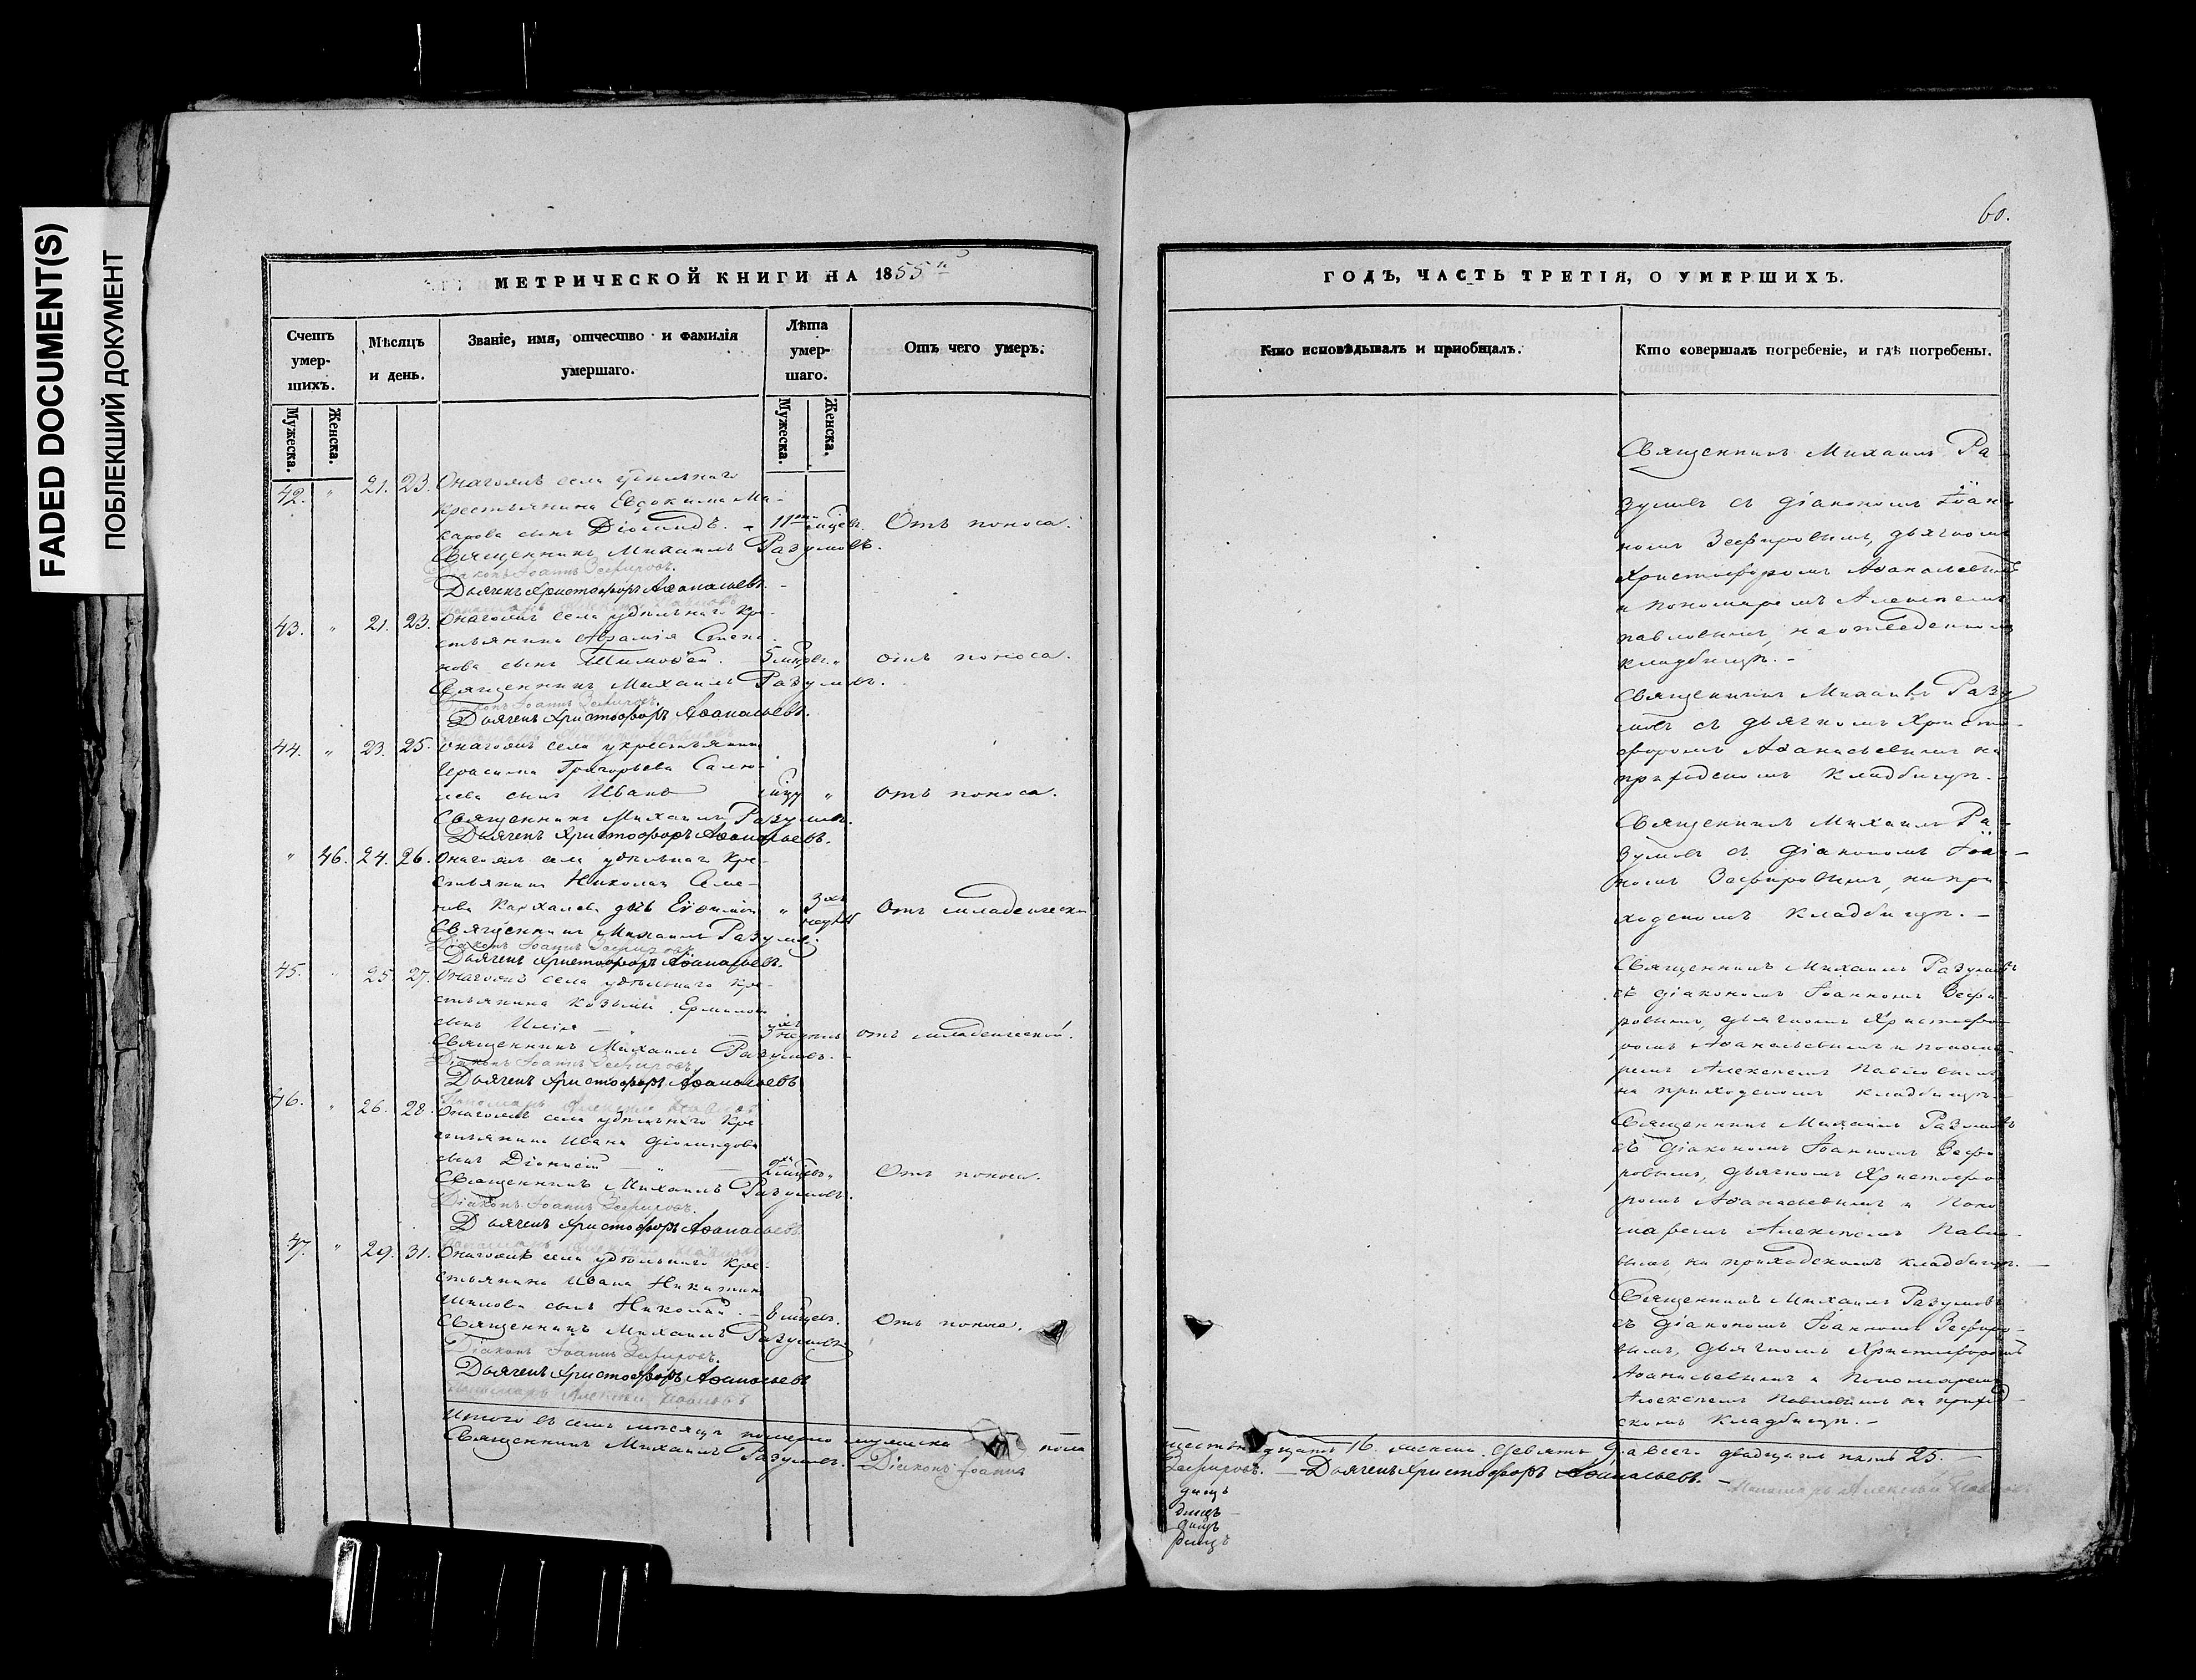 FADED DOCUMENT(S)
ПОБЛЕКШИЙ ДОКУМЕНТ
60.
МЕТРИЧЕСКОЙ КНИГИ НА 1855й
ГОДЪ, ЧАСТЬ ТРЕТІЯ, О УМЕРШИХЪ.
Счетъ умер-
шихъ.
Мѣсяцъ
и день.
Званіе, имя, отчество и фамилія
умершаго.
Лѣта
умер-
шаго.
Отъ чего умеръ.
Кто исповѣдывалъ и приобщалъ.
Кто совершалъ погребеніе, и гдѣ погребены.
Мужеска.
Женска.
Мужеска.
Женска.
42. " 21. 23. Онагожъ села удѣльнаго
крестьянина Евдокима Ма-
карова сынъ Діомидъ. 11ти мцевъ. Отъ поноса.
Священникъ Михаилъ Разумовъ.
Діаконъ Іоаннъ Зефировъ.
Дьячекъ Христофоръ Аѳанасьевъ.
Священникъ Михаилъ Ра-
зумовъ съ діакономъ Іоан-
номъ Зефировымъ, дьячкомъ
Христофоромъ Аѳанасьевымъ
и пономаремъ Алексѣемъ
Павловымъ,
кладбищѣ.
43. " 21. 23. Онагожъ села удѣльнаго кре-
стьянина Авраамія Степа-
нова сынъ Тимоѳей. 5 мцевъ. " отъ поноса.
Священникъ Михаилъ Разумовъ.
Діаконъ Іоаннъ Зефировъ.
Дьячекъ Христофоръ Аѳанасьевъ.
Пономарь Алексѣй Павловъ
Священникъ Михаилъ Разу
мовъ съ дьячкомъ Христо-
форомъ Аѳанасьевымъ на
приходскомъ кладбищѣ.
44. " 23. 25. Онагожъ села у крестьянина
Герасима Григорьева
сынъ Иванъ " отъ поноса.
Священникъ Михаилъ Разумовъ.
Дьячекъ Христофоръ Аѳанасьевъ.
Священникъ Михаилъ Ра-
зумовъ съ діакономъ Іоан-
номъ Зефировымъ, на при-
ходскомъ кладбищѣ.
" 46. 24. 26. Онагожъ села удѣльнаго кре-
стьянина Николая
дочь " 3хъ недѣль Отъ младенческой
Священникъ Михаилъ Разумовъ.
Діаконъ Іоаннъ Зефировъ
Дьячекъ Христофоръ Аѳанасьевъ.
Священникъ Михаилъ Разумовъ
съ діакономъ Іоанномъ Зефи-
ровымъ, дьячкомъ Христофо-
ромъ Аѳанасьевымъ и понома-
ремъ Алексѣемъ Павловымъ
на приходскомъ кладбищѣ.
45. " 25. 27. Онагожъ села удѣльнаго кре-
стьянина Козьмы
сынъ Илія 3хъ недѣль отъ младенческой.
Священникъ Михаилъ Разумовъ.
Діаконъ Іоаннъ Зефировъ.
Дьячекъ Христофоръ Аѳанасьевъ
Пономарь Алексѣй Павловъ
Священникъ Михаилъ Разумовъ
съ діакономъ Іоанномъ Зефи-
ровымъ, дьячкомъ Христофо-
ромъ Аѳанасьевымъ и Поно-
маремъ Алексѣемъ Павло-
вымъ, на приходскомъ кладбищѣ.
46. " 26. 28. Онагожъ села удѣльнаго кре-
стьянина Ивана Діомидова
сынъ Діонисій 2хъ мцевъ " Отъ поноса.
Священникъ Михаилъ Разумовъ.
Діаконъ Іоаннъ Зефировъ.
Дьячекъ Христофоръ Аѳанасьевъ
Священникъ Михаилъ Разумовъ
съ діакономъ Іоанномъ Зефиро-
вымъ, дьячкомъ Христофоромъ
Аѳанасьевымъ и Пономаремъ
Алексѣемъ Павловымъ на приход-
скомъ кладбищѣ.
47. " 29. 31. Онагожъ села удѣльнаго кре-
стьянина Ивана Никитина
Шилова сынъ Николай. 8 мцевъ. Отъ поноса.
Священникъ Михаилъ Разумовъ
Діаконъ Іоаннъ Зефировъ.
Дьячекъ Христофоръ Аѳанасьевъ
Пономарь Алексѣй Павловъ
Итого въ семъ мѣсяцѣ померло мужеска пола
шестьнадцать 16. женска девять 9. а всего двадцать пять 25.
Священникъ Михаилъ Разумовъ. Діаконъ Іоаннъ
Зефировъ. Дьячекъ Христофоръ Аѳанасьевъ.
Пономарь Алексѣй Павловъ